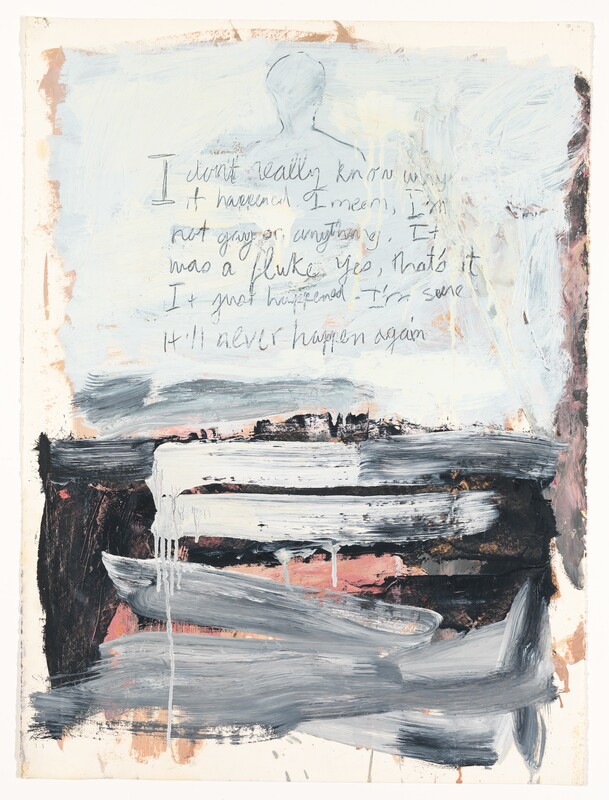 I don't really know why
it happened I mean, I'm
not gay or anything. It
was a fluke Yes, that's it
It just happened. I'm sure
It'll never happen again